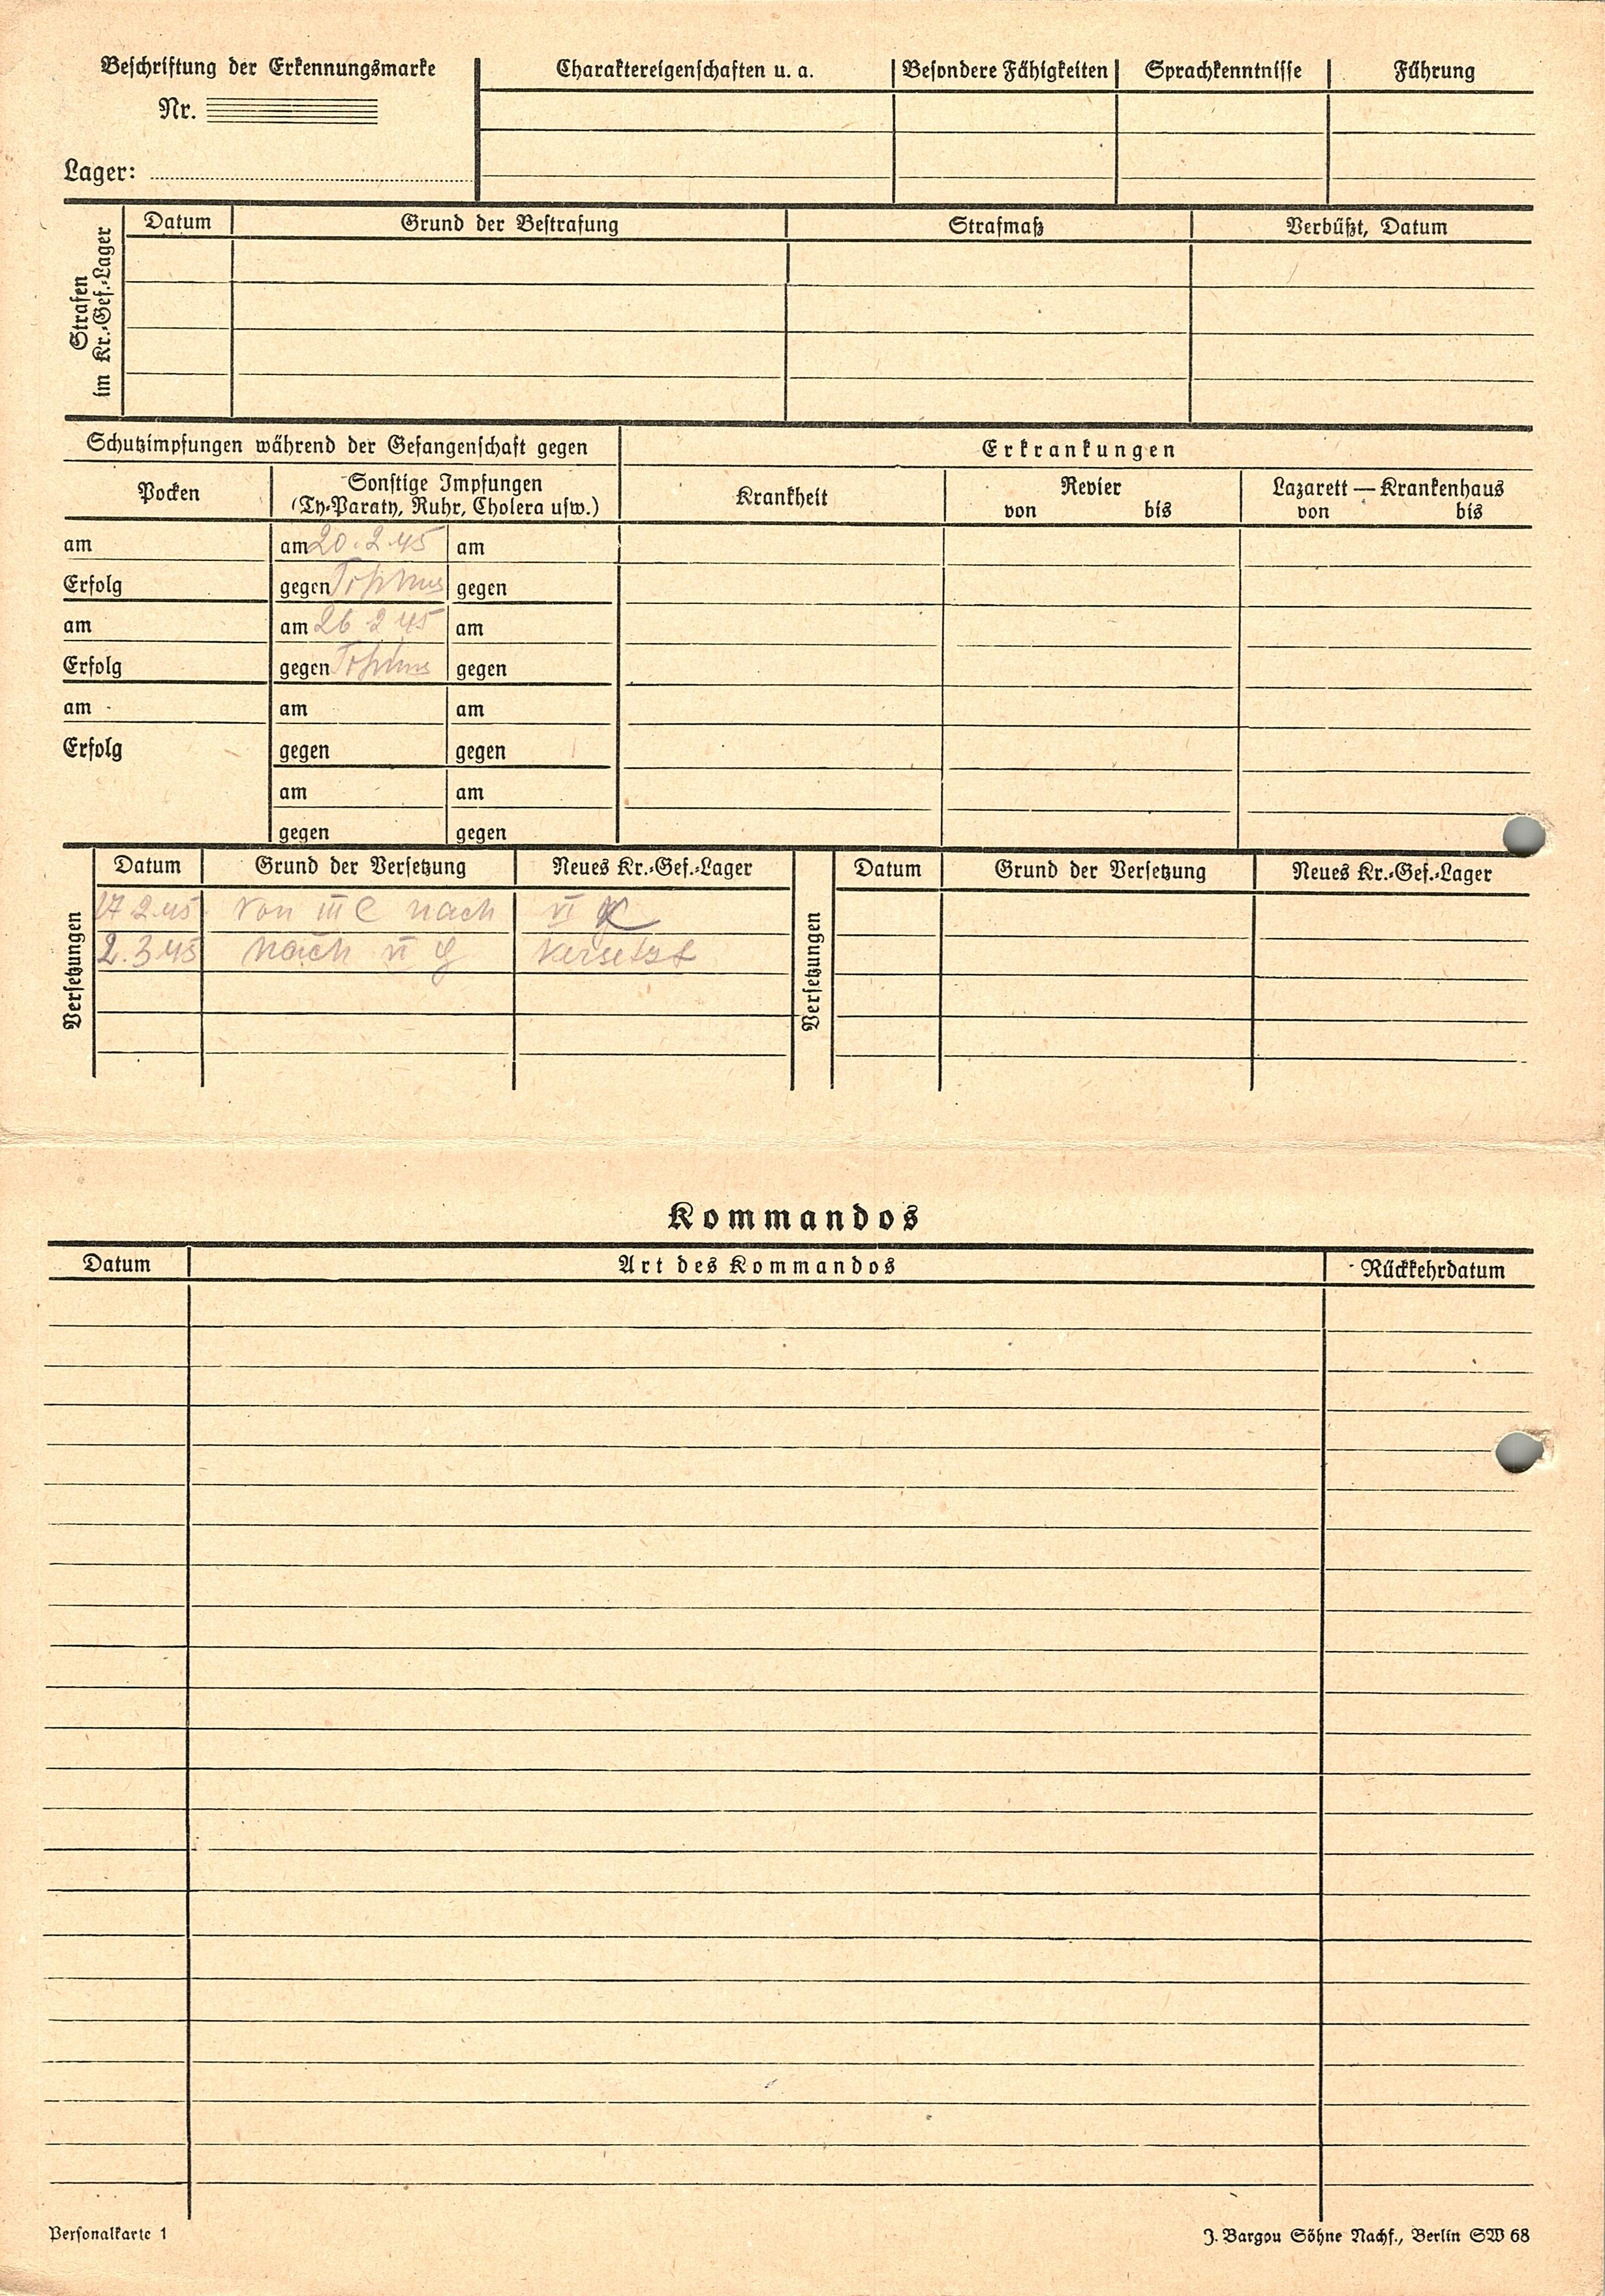 Beschriftung der Erkennungsmarke
Nr.
Lager:
Charaktereigenschaften u. a.
Besondere Fähigkeiten
Sprachkenntnisse
Führung
Strafen
im Kr.-Gef.-Lager
Datum
Grund der Bestrafung
Strafmaß
Verbüßt, Datum
Schutzimpfungen während der Gefangenschaft gegen
Erkrankungen
Pocken
Sonstige Impfungen
(Ty-Paraty, Ruhr, Cholera usw.)
Krankheit
Revier
von bis
Lazarett — Krankenhaus
von bis
am am 20.2.45 am
Erfolg gegen Typhus gegen
am am 26 2 45 am
Erfolg gegen Typhus gegen
am am am
Erfolg gegen gegen
am am
gegen gegen
Versetzungen
Datum Grund der Versetzung Neues Kr.-Gef.-Lager
17 2.45 von III C nach VI K
2.3.45 nach VI G versetzt
Versetzungen
Datum Grund der Versetzung Neues Kr.-Gef.-Lager
Kommandos
Datum Art des Kommandos Rückkehrdatum
Personalkarte 1
J. Bargou Söhne Nachf., Berlin SW 68